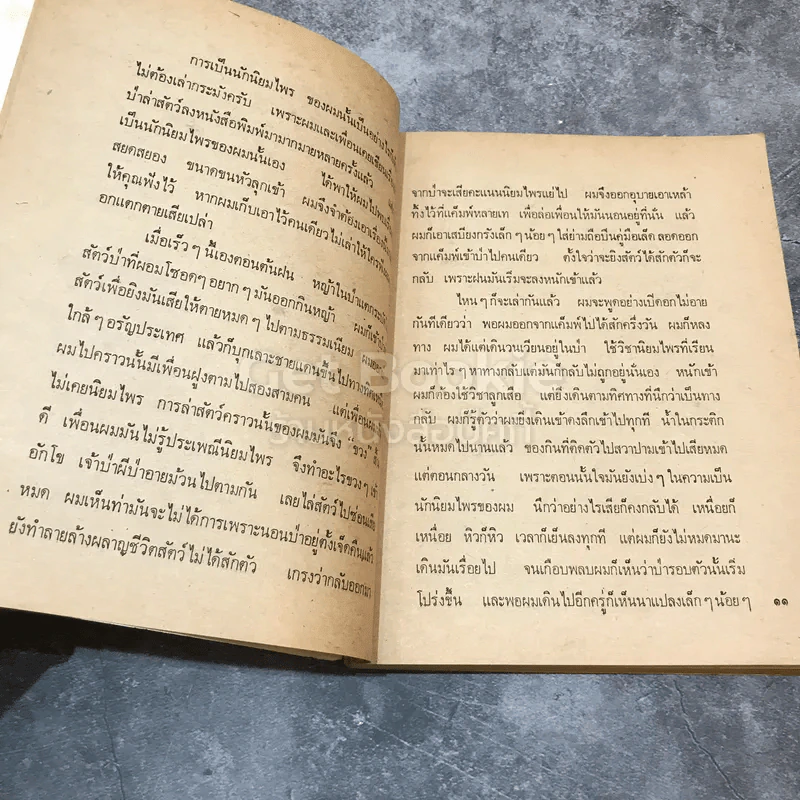 การเป็นนักนิยมไพร ของผมนั้นเป็นอย่างไร
ไม่ต้องเล่ากระมังครับ เพราะผมและเพื่อนเคยเขียนเรื่อง
ป่าล่าสัตว์ลงหนังสือพิมพ์มามากมายหลายครั้งแล้ว
เป็นนักนิยมไพรของผมนั้นเอง ได้พาให้ผมไป
สยดสยอง ขนาดขนหัวลุกเข้า ผมจึงจำต้องเอาเรื่อง
ให้คุณฟังไว้ หากผมเก็บเอาไว้คนเดียวไม่เล่าให้ใคร
อกแตกตายเสียเปล่า
เมื่อเร็ว ๆ นี้เองตอนต้นฝน หญ้าในป่าแตก
สัตว์ป่าที่ผอมโซอดๆ อยากๆ มันออกกินหญ้า ผมก็เข้า
สัตว์เพื่อยิงมันเสียให้ตายหมดๆ ไปตามธรรมเนียม ผม
ใกล้ๆ อรัญประเทศ แล้วก็บุกเลาะชายแดนขึ้นไปทางทิศ
ผมไปคราวนั้นมีเพื่อนฝูงตามไปสองสามคน แต่เพื่อน
ไม่เคยนิยมไพร การล่าสัตว์คราวนั้นของผมมันจึง "ขวง"
ดี เพื่อนผมมันไม่รู้ประเพณีนิยมไพร จึงทำอะไรขวางๆ
อักโข เจ้าป่าผีป่าอายม้วนไปตามกัน เลยไล่สัตว์ไปซ่อน
หมด ผมเห็นท่ามันจะไม่ได้การเพราะนอนป่าอยู่ตั้งเจ็ดคืนแล้ว
ยังทำลายล้างผลาญชีวิตสัตว์ไม่ได้สักตัว เกรงว่ากลับออกมา
จากป่าจะเสียคะแนนนิยมไพรแย่ไป ผมจึงออกอุบายเอาเหล้า
ทิ้งไว้ที่แค็มพ์หลายเท เพื่อล่อเพื่อนให้มันนอนอยู่ที่นั่น แล้ว
ผมก็เอาเสบียงกรังเล็ก ๆ น้อย ๆ ใส่ย่ามถือปืนคู่มือเล็ด ลอดออก
จากแค็มพ์เข้าป่าไปคนเดียว ตั้งใจว่าจะยิงสัตว์ได้สักตัวก็จะ
กลับ เพราะฝนมันเริ่มจะลงหนักเข้าแล้ว
ไหน ๆ ก็จะเล่ากันแล้ว ผมจะพูดอย่างเปิดอกไม่อาย
กันทีเดียวว่า พอผมออกจากแค็มพ์ไปได้สักครึ่งวัน ผมก็หลง
ทาง ผมได้แต่เดินวนเวียนอยู่ในป่า ใช้วิชานิยมไพรที่เรียน
มาเท่าไร ๆ หาทางกลับแต่มันก็กลับไม่ถูกอยู่นั่นเอง หนักเข้า
ผมก็ต้องใช้วิชาลูกเสือ แต่ยิ่งเดินตามทิศทางที่นึกว่าเป็นทาง
กลับ ผมก็รู้ตัวว่าผมยิ่งเดินเข้าดงลึกเข้าไปทุกที น้ำในกระติก
นั้นหมดไปนานแล้ว ของกินที่ติดตัวไปสวาปามเข้าไปเสียหมด
แต่ตอนกลางวัน เพราะตอนนั้นใจมันยังเบ่ง ๆ ในความเป็น
นักนิยมไพรของผม นึกว่าอย่างไรเสียก็คงกลับได้ เหนื่อยก็
เหนื่อย หิวก็หิว เวลาก็เย็นลงทุกที แต่ผมก็ยังไม่หมดมานะ
เดินมันเรื่อยไป จนเกือบพลบผมก็เห็นว่าป่ารอบตัวนั้นเริ่ม
โปร่งขึ้น และพอผมเดินไปอีกครู่ก็เห็นนาแปลงเล็ก ๆ น้อย ๆ ๑๑